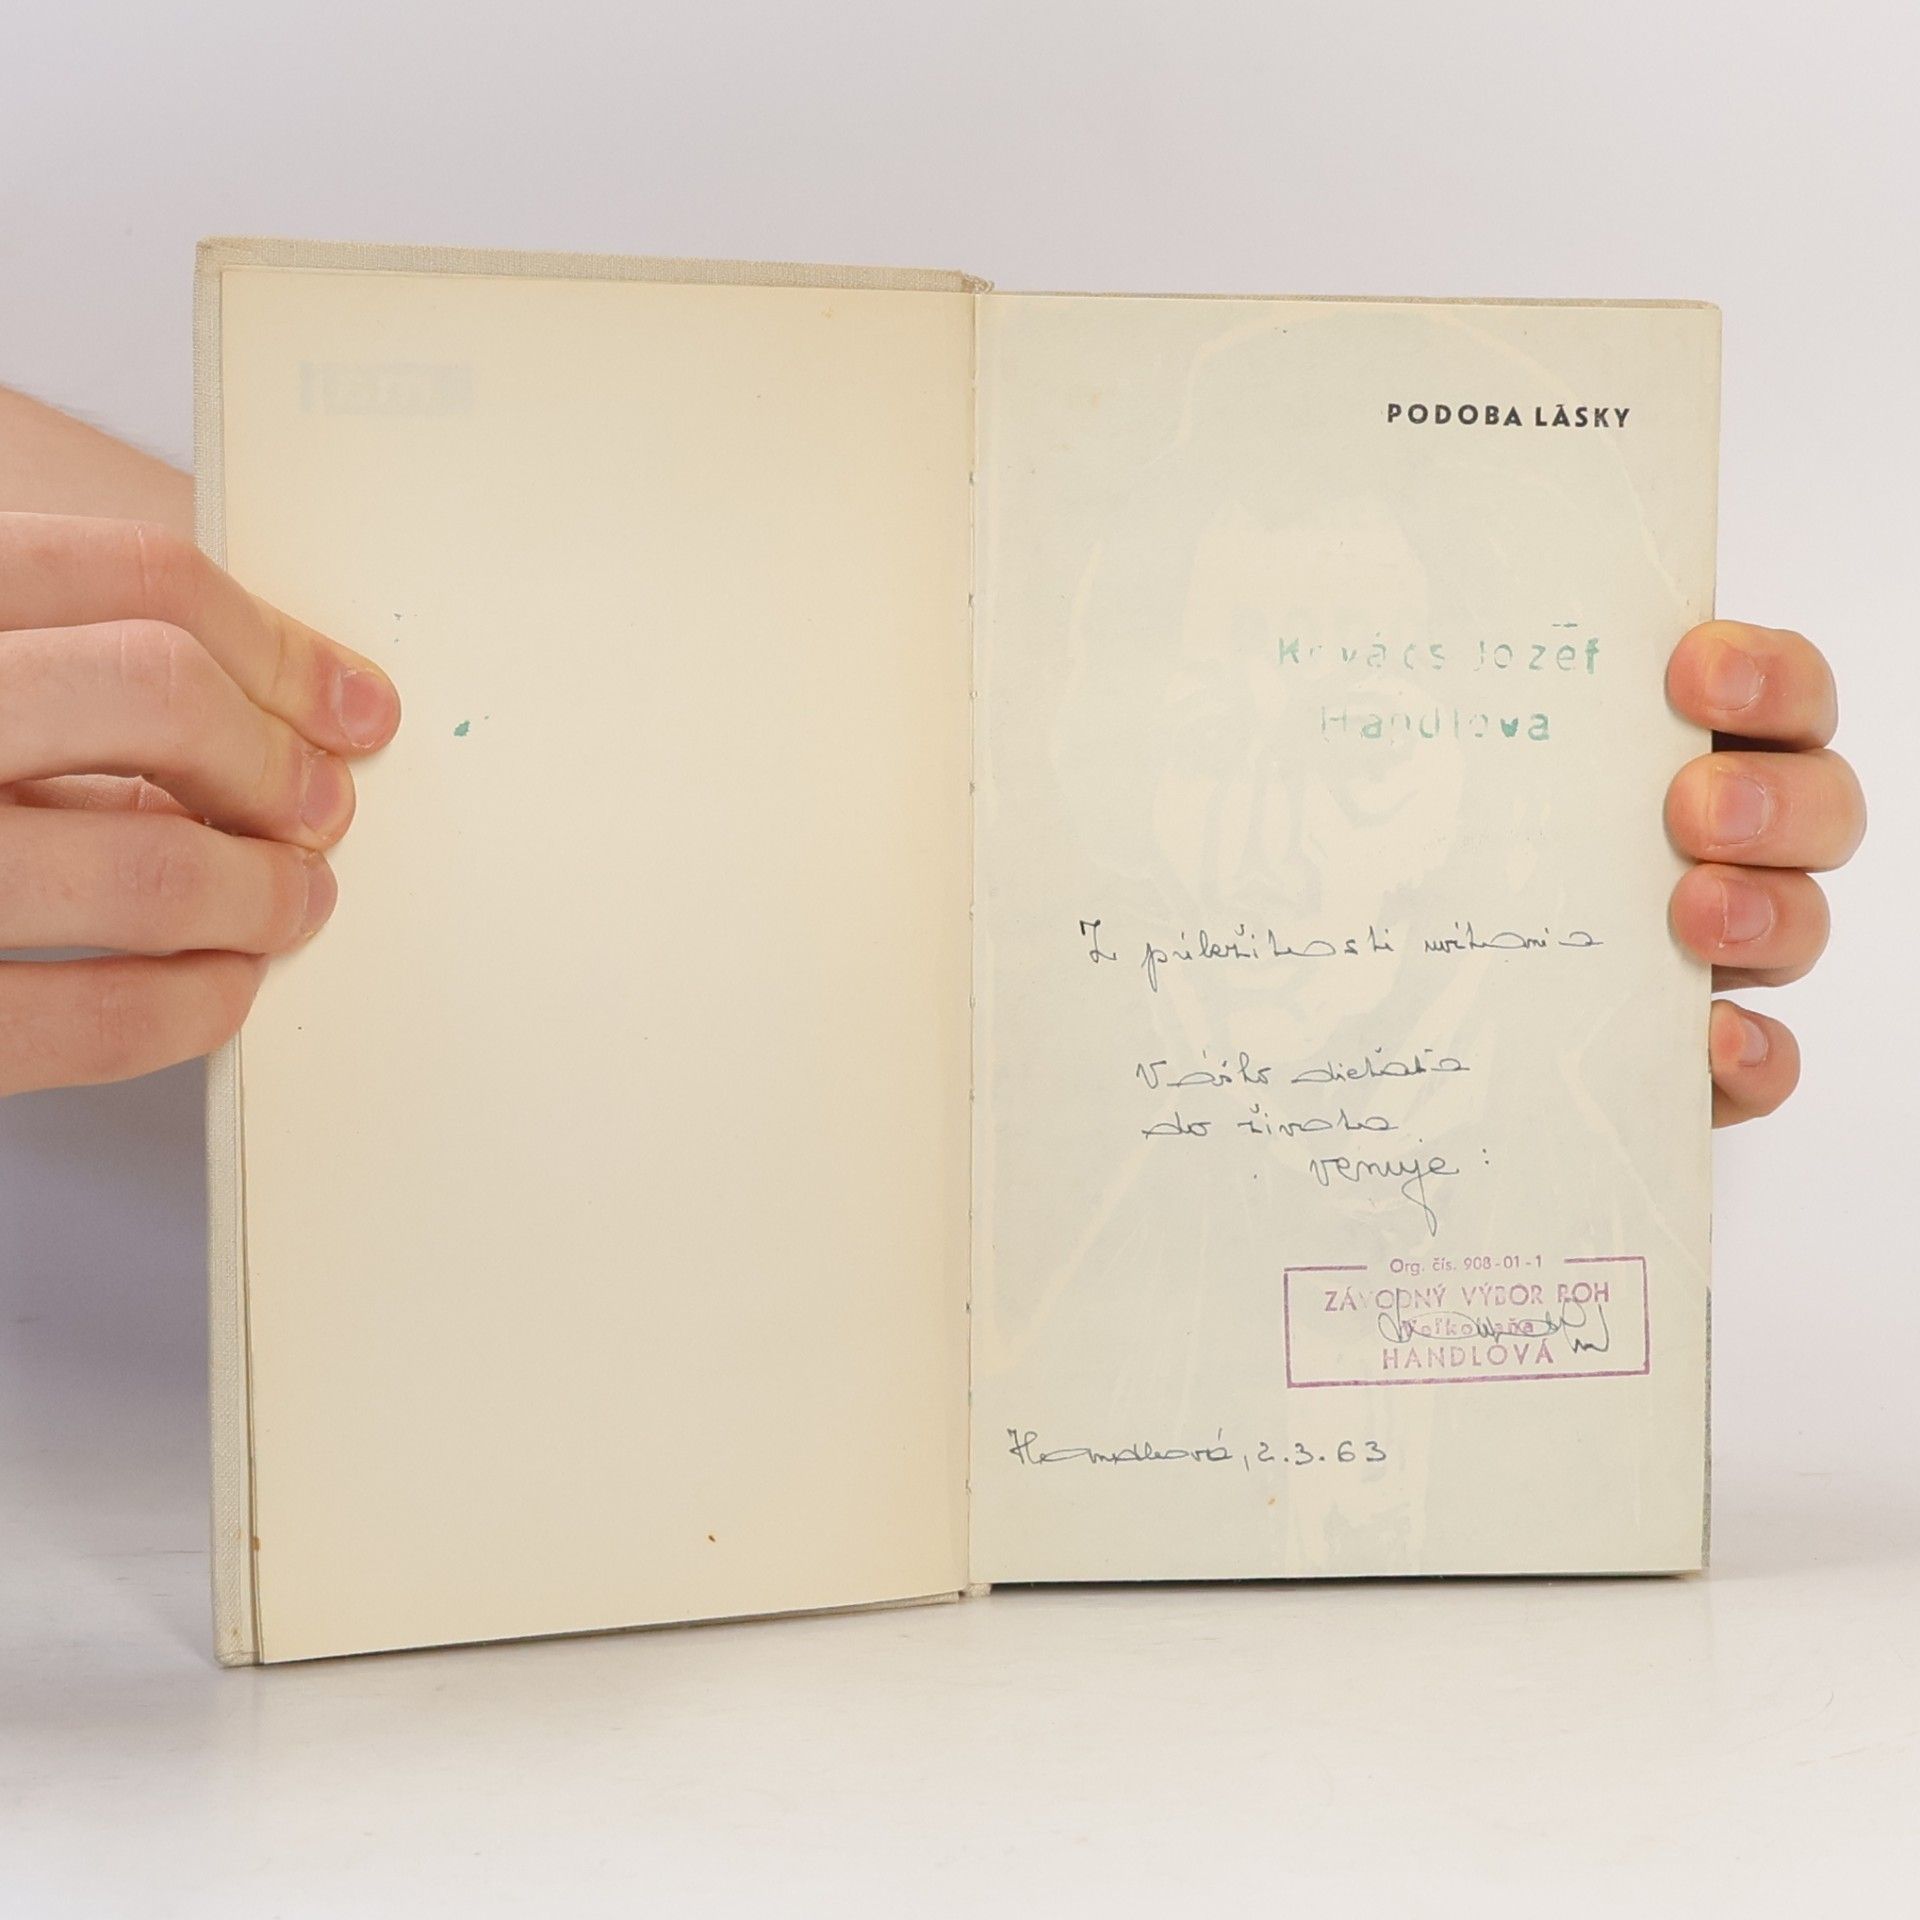 PODOBA LÁSKY
Kovács Jozef
Handlova
Z príležitosti uvítania
Vášho dieťaťa
do života
venuje:
Org. čís. 908-01-1
ZÁVODNÝ VÝBOR ROH
HANDLOVÁ
Handlová, 2.3.63